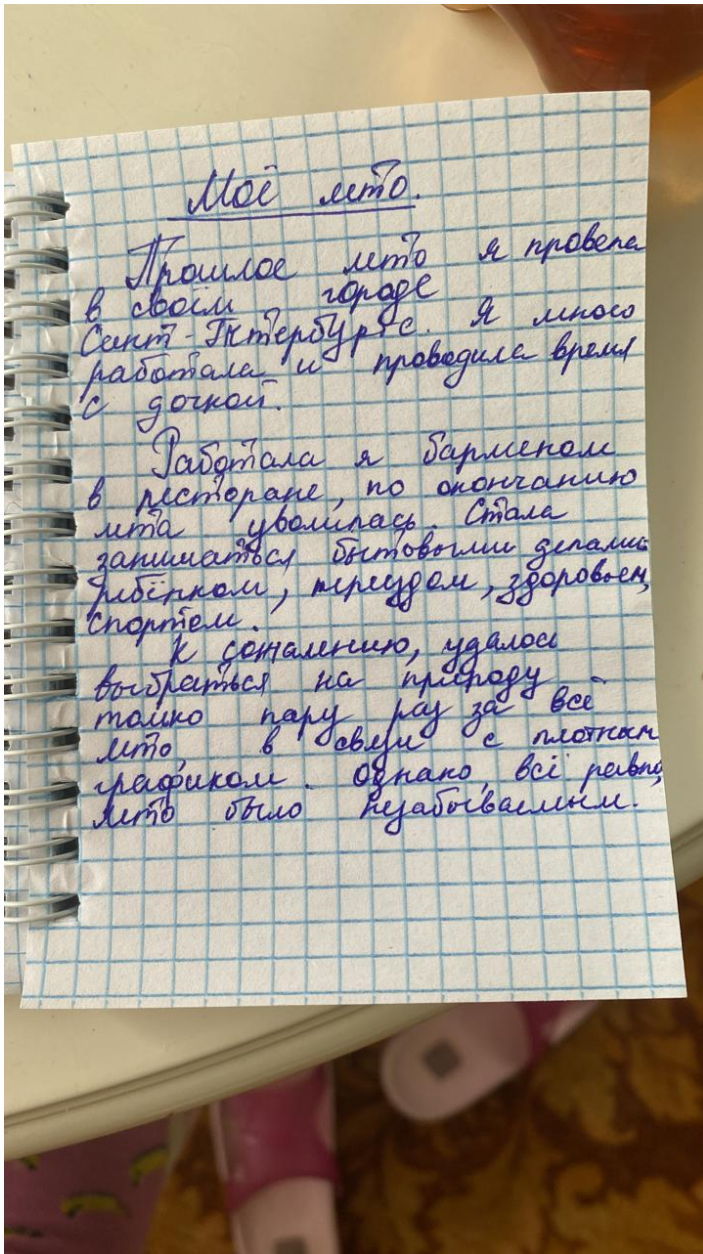 Моё лето.
Прошлое лето я провела
в своём городе
Санкт-Петербурге. Я много
работала и проводила время
с дочкой.
Работала я барменом
в ресторане, по окончанию
лета уволилась. Стала
заниматься бытовыми делами,
ребёнком, переездом, здоровьем,
спортом.
К сожалению, удалось
выбраться на природу
только пару раз за всё
лето в связи с плотным
графиком. Однако, всё равно,
лето было незабываемым.